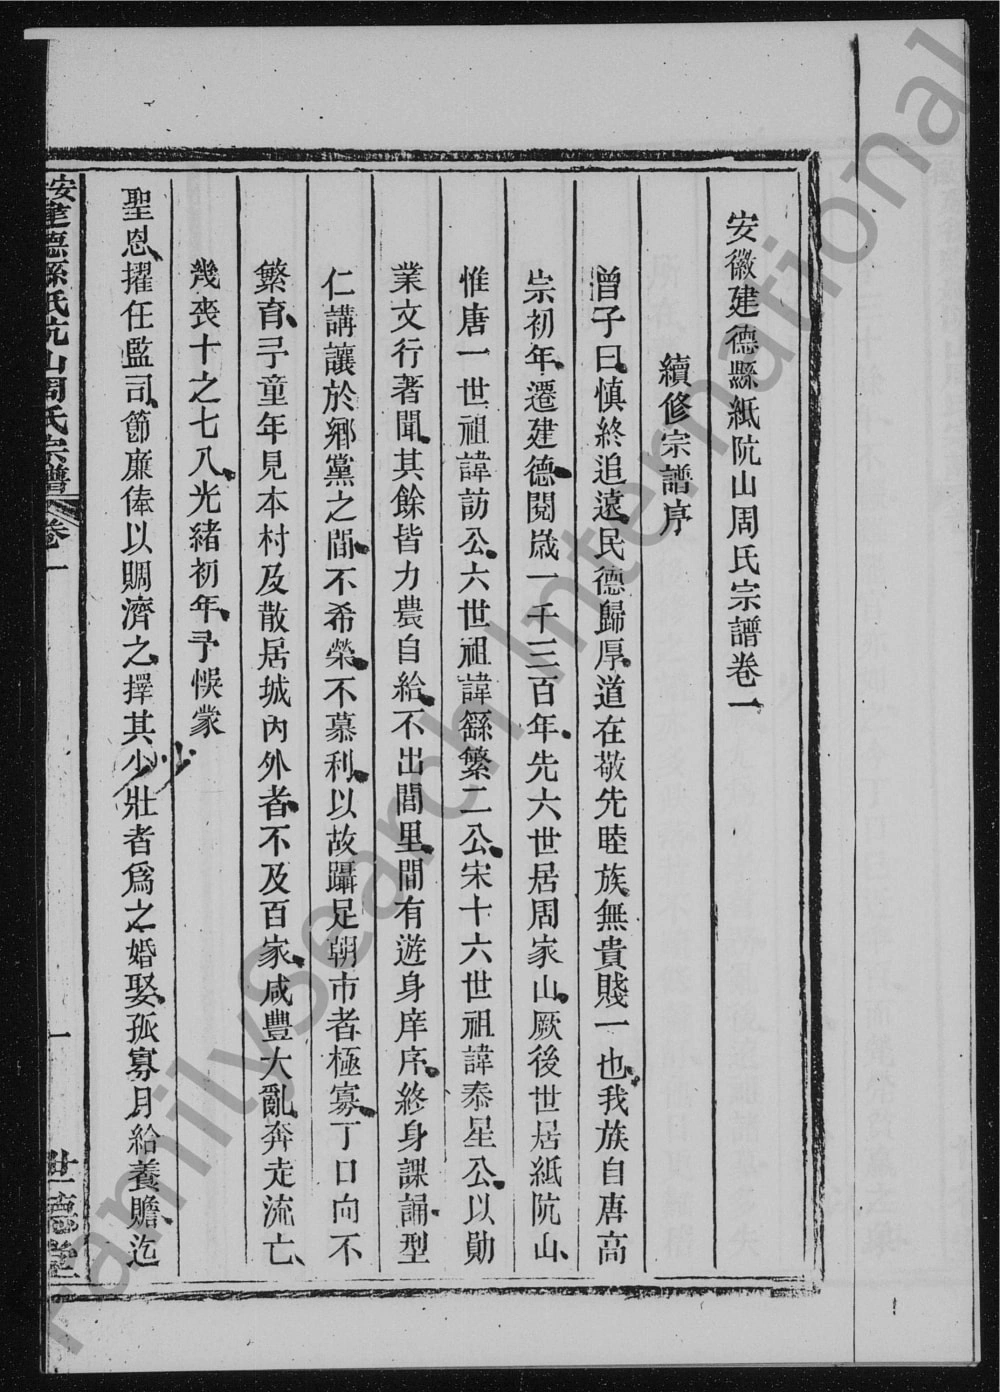 安徽建德縣紙阬山周氏宗譜卷一
續修宗譜序
曾子曰慎終追遠民德歸厚道在敬先睦族無貴賤一也我族自唐高
宗初年遷建德閱歲一千三百年先六世居周家山厥後世居紙阬山
惟唐一世祖諱訪公六世祖諱繇繁二公宋十六世祖諱泰星公以勛
業文行著聞其餘皆力農自給不出閭里間有遊身庠序終身課誦型
仁講讓於鄉黨之間不希榮不慕利以故躡足朝市者極寡丁口向不
繁育予童年見本村及散居城內外者不及百家咸豐大亂奔走流亡
幾喪十之七八光緒初年予悞蒙
聖恩擢任監司節廉俸以賙濟之擇其少壯者爲之婚娶孤寡月給養贍迄
安建德縣氏阬山周氏宗譜 卷一 一 世德堂
FamilySearch International